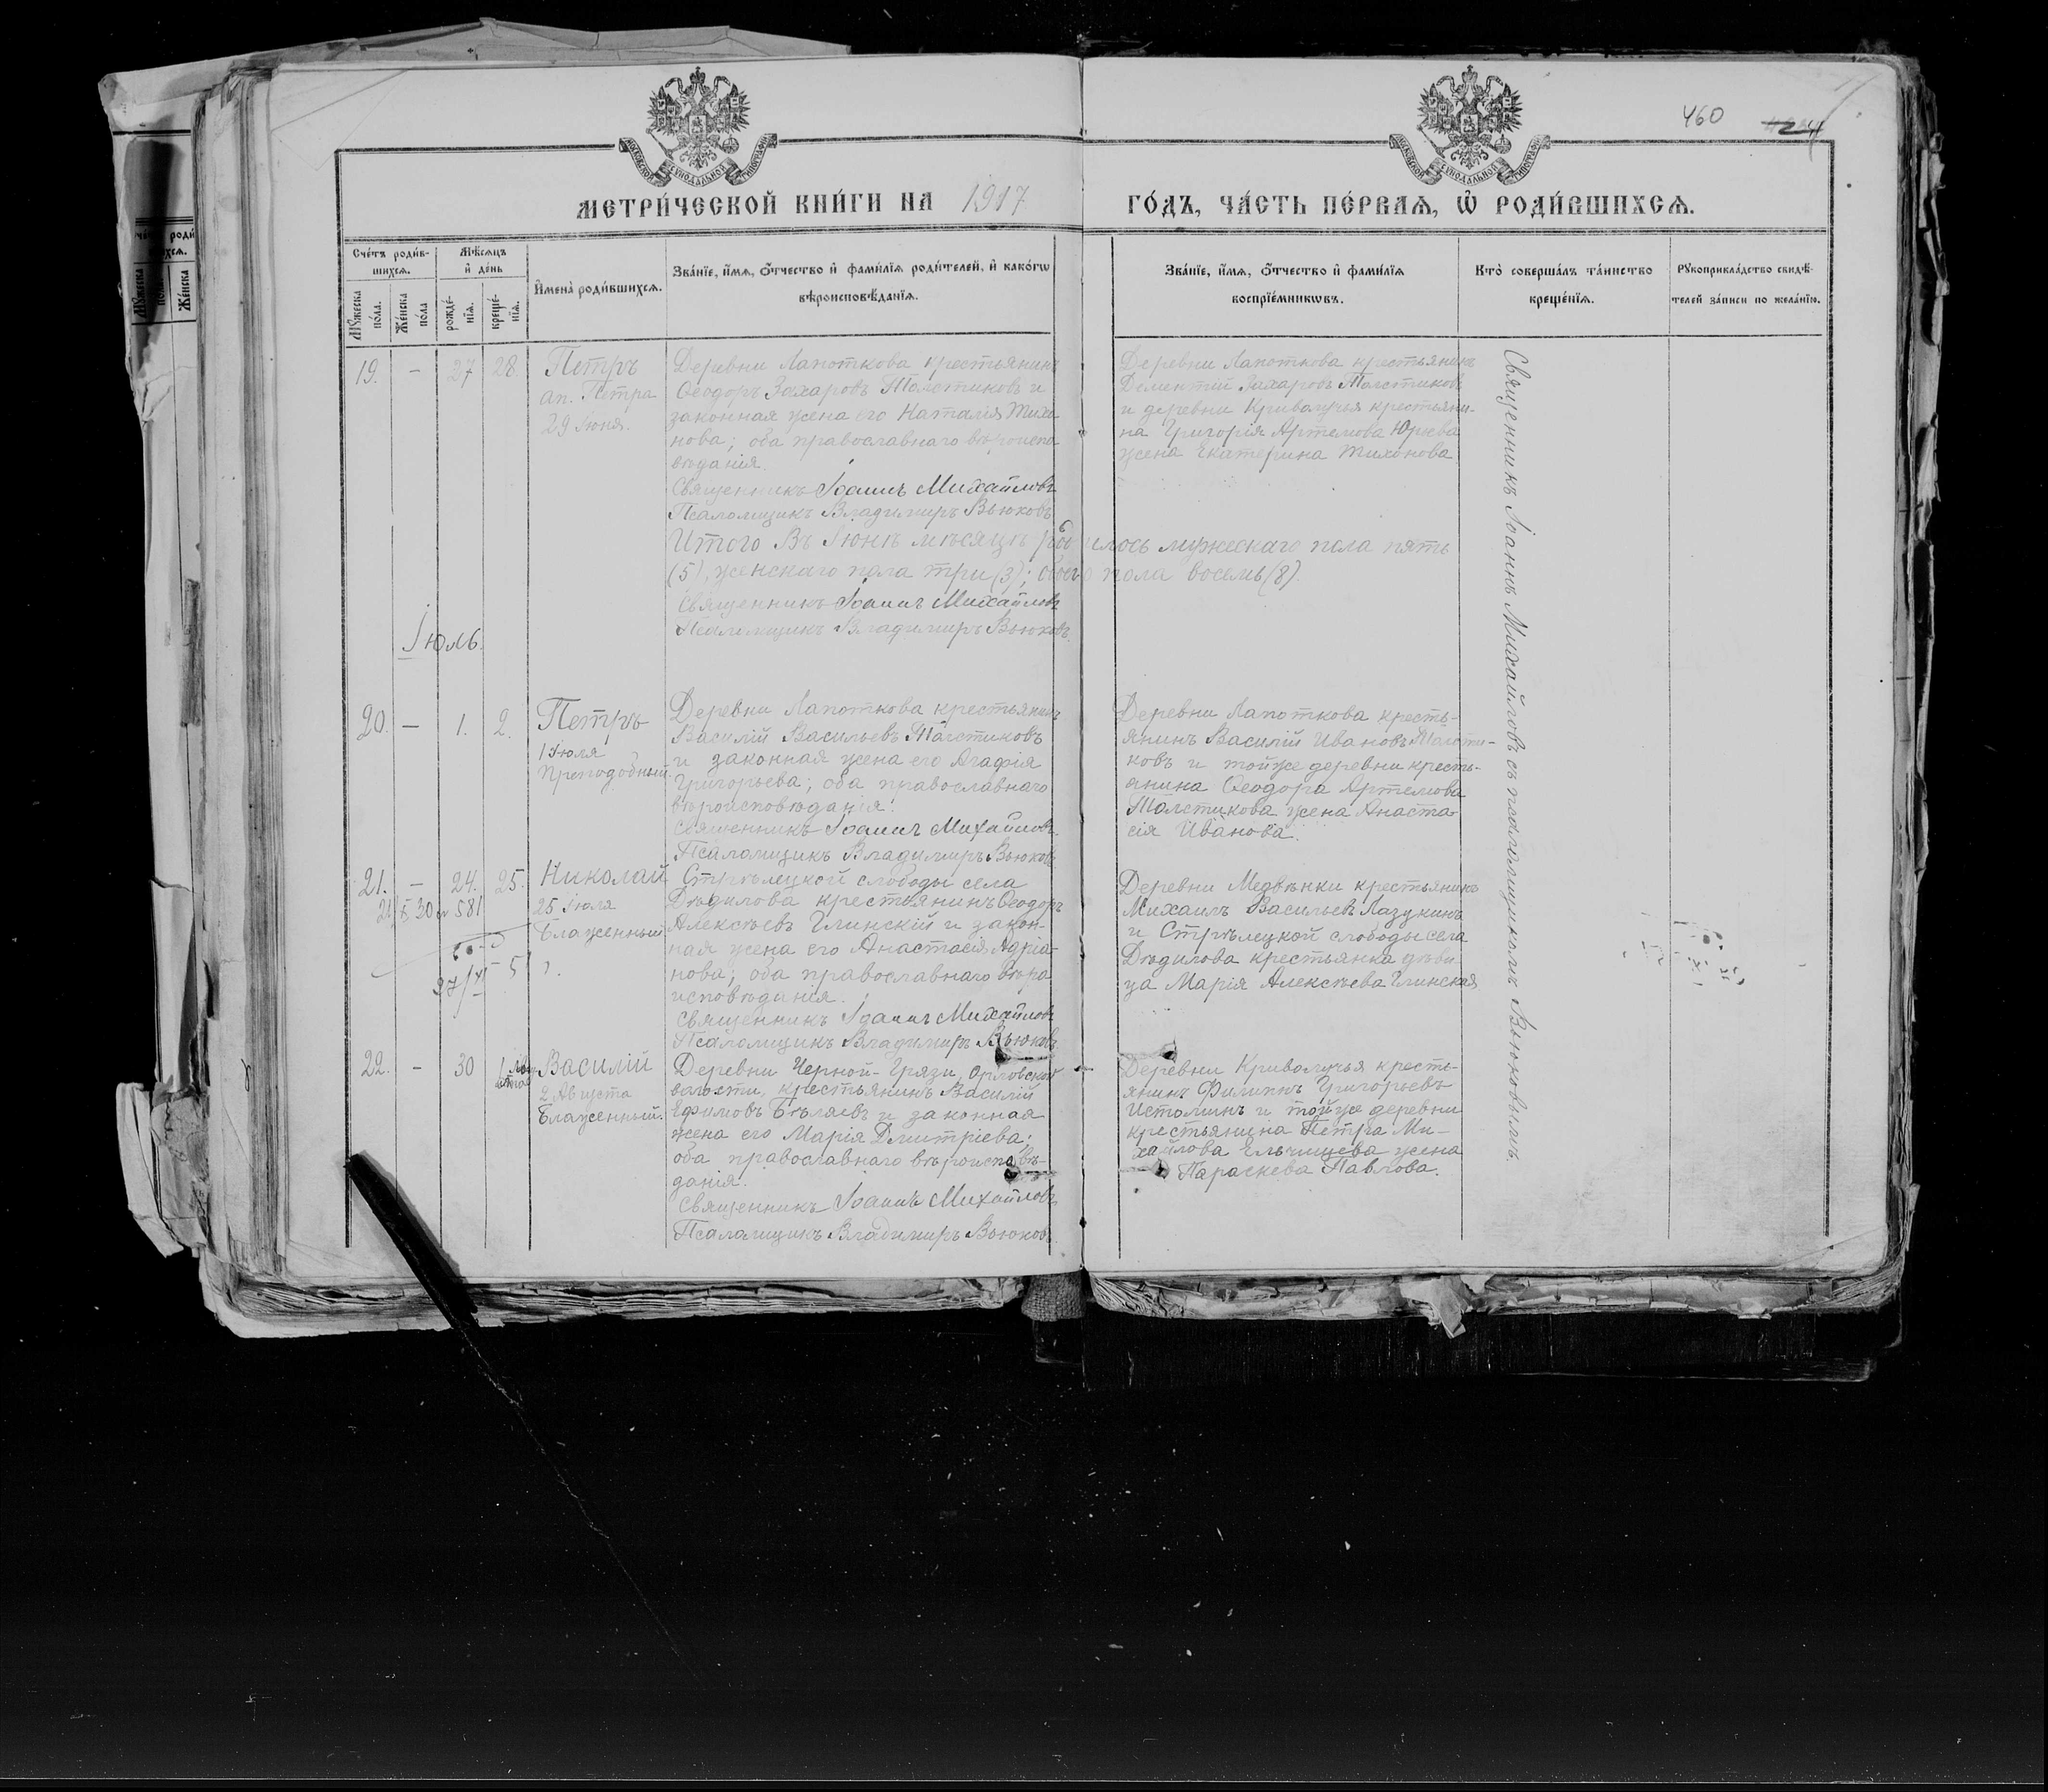 460
МОСКОВСКОЙ СѴНОДАЛЬНОЙ ТИПОГРАФІИ
МОСКОВСКОЙ СѴНОДАЛЬНОЙ ТИПОГРАФІИ
МЕТРИ́ЧЕСКОЙ КНИ́ГИ НА 1917 ГО́ДЪ, ЧА́СТЬ ПЕ́РВАѦ, Ѡ҆ РОДИ́ВШИХСѦ.
Сче́тъ роди́в-
шихсѧ.
Мѣ́сѧцъ
и҆ де́нь
Мꙋ́жеска
по́ла.
Же́нска
по́ла
рожде́-
нїѧ.
креще́-
нїѧ.
И҆мена̀ роди́вшихсѧ.
Зва́нїе, и҆́мѧ, ѻ҆́тчество и҆ фами́лїѧ роди́телей, и҆ како́гѡ
вѣроисповѣ́данїѧ.
Зва́нїе, и҆́мѧ, ѻ҆́тчество и҆ фами́лїѧ
воспрїе́мникѡвъ.
Кто̀ соверша́лъ та́инство
креще́нїѧ.
Рꙋкоприкла́дство свидѣ́-
телей за́писи по жела́нїю.
19. – 27 28.
Петръ
ап. Петра
29 Іюня.
Деревни Лапоткова крестьянинъ
Ѳеодоръ Захаровъ Толстиковъ и
законная жена его Наталія Тихо-
нова; оба православнаго вѣроиспо
вѣданія.
Священникъ Іоаннъ Михайловъ
Псаломщикъ Владимиръ Вьюковъ
Деревни Лапоткова крестьянинъ
Дементій Захаровъ Толстиковъ
и деревни Криволучья крестьяни-
на Григорія Артемова Юрьева
жена Екатерина Тихонова
Священникъ Іоаннъ Михайловъ съ псаломщикомъ Вьюковымъ.
Итого въ Іюнѣ мѣсяцѣ родилось мужескаго пола пять
(5), женскаго пола три (3); обоего пола восемь (8).
Священникъ Іоаннъ Михайловъ
Псаломщикъ Владимиръ Вьюковъ.
Іюль.
20. – 1. 2.
Петръ
1 Іюля
Преподобный.
Деревни Лапоткова крестьянинъ
Василій Васильевъ Толстиковъ
и законная жена его Агафія
Григорьева; оба православнаго
вѣроисповѣданія.
Священникъ Іоаннъ Михайловъ.
Псаломщикъ Владимиръ Вьюковъ
Деревни Лапоткова кресть-
янинъ Василій Ивановъ Толсти-
ковъ и тойже деревни кресть-
янина Ѳеодора Артемова
Толстикова жена Анаста-
сія Иванова.
21. – 24. 25.
Николай
25 Іюля
Блаженный
Стрѣлецкой слободы села
Дѣдилова крестьянинъ Ѳеодоръ
Алексѣевъ Глинскій и закон-
ная жена его Анастасія Адріа-
нова; оба православнаго вѣро
исповѣданія.
Священникъ Іоаннъ Михайловъ
Псаломщикъ Владимиръ Вьюковъ.
Деревни Медвѣнки крестьянинъ
Михаилъ Васильевъ Лазукинъ
и Стрѣлецкой слободы села
Дѣдилова крестьянка дѣви-
ца Марія Алексѣева Глинская
22. – 30
Василій
2 Августа
Блаженный.
Деревни Черной-Грязи, Орловской
волости, крестьянинъ Василій
Ефимовъ Бѣляевъ и законная
жена его Марія Дмитріева;
оба православнаго вѣроисповѣ-
данія.
Священникъ Іоаннъ Михайловъ
Псаломщикъ Владимиръ Вьюковъ
Деревни Криволучья кресть-
янинъ Филиппъ Григорьевъ
Истоминъ и тойже деревни
крестьянина Петра Ми-
хайлова жена
Параскева Павлова.